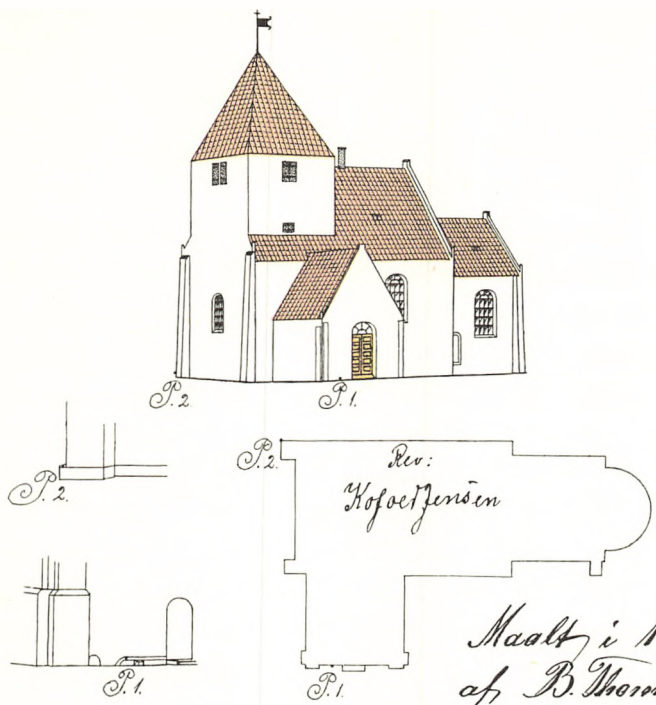 P. 2
P. 1.
P. 2.
P. 2.
Rev:
Kofoed Jensen
Maalt i
af B.
P. 1.
P. 1.